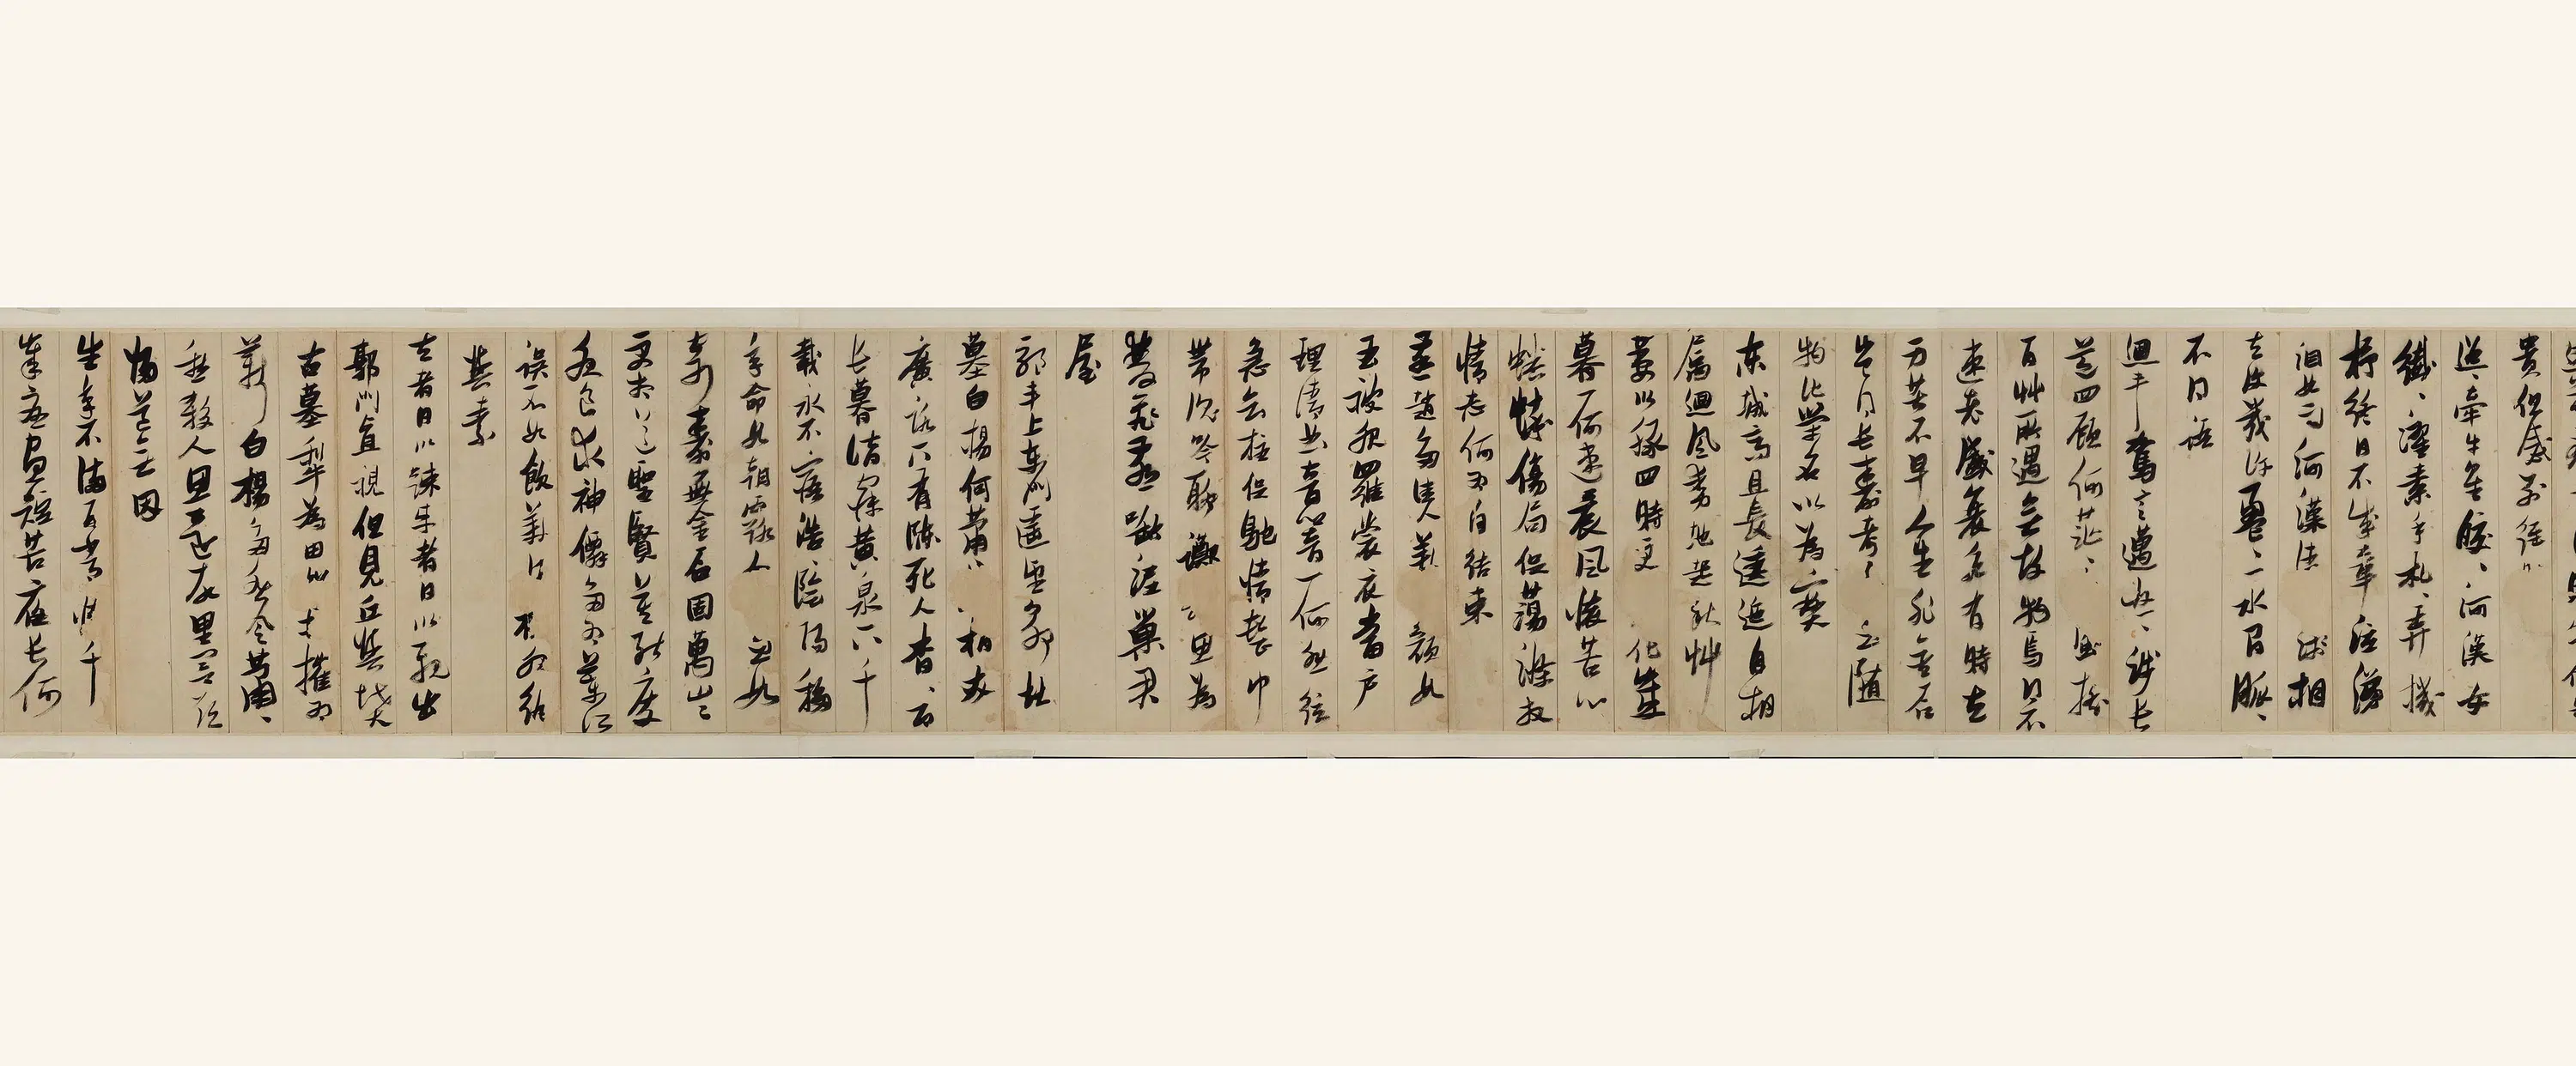 貴但感別經時
迢迢牽牛星皎皎河漢女
纖纖濯素手札札弄機
杼終日不成章泣涕
泪如雨河漢清淺相
去復幾許盈盈一水間脈脈
不得語
迴車駕言邁悠悠涉長
道四顧何茫茫風搖
百草所遇無故物焉得不
速老盛衰各有時立
身苦不早人生非金石
豈能長壽考忽隨
物化榮名以為寶
東城高且長逶迤自相
屬迴風動地起秋草
萋以綠四時更化歲
暮一何速晨風懷苦心
蟋蟀傷局促蕩滌放
情志何為自結束
燕趙多佳人美顏如
玉被服羅裳衣當戶
理清曲音響一何悲絃
急知柱促馳情整巾
帶沉吟聊躑躅思為
雙飛燕啣泥巢君
屋
驅車上東門遙望郭北
墓白楊何蕭蕭松柏夾
廣路下有陳死人杳杳即
長暮潛寐黃泉下千
載永不寤浩浩陰陽移
年命如朝露人生忽如
寄壽無金石固萬歲
更相送聖賢莫能度
服食求神僊多為藥所
誤不如飲美酒被服紈
與素
去者日以疎生者日以親出
郭門直視但見丘與墳
古墓犁為田松柏摧為
薪白楊多悲風蕭蕭
愁殺人思還故里閭欲
歸道無因
生年不滿百常懷千
歲憂晝短苦夜長何